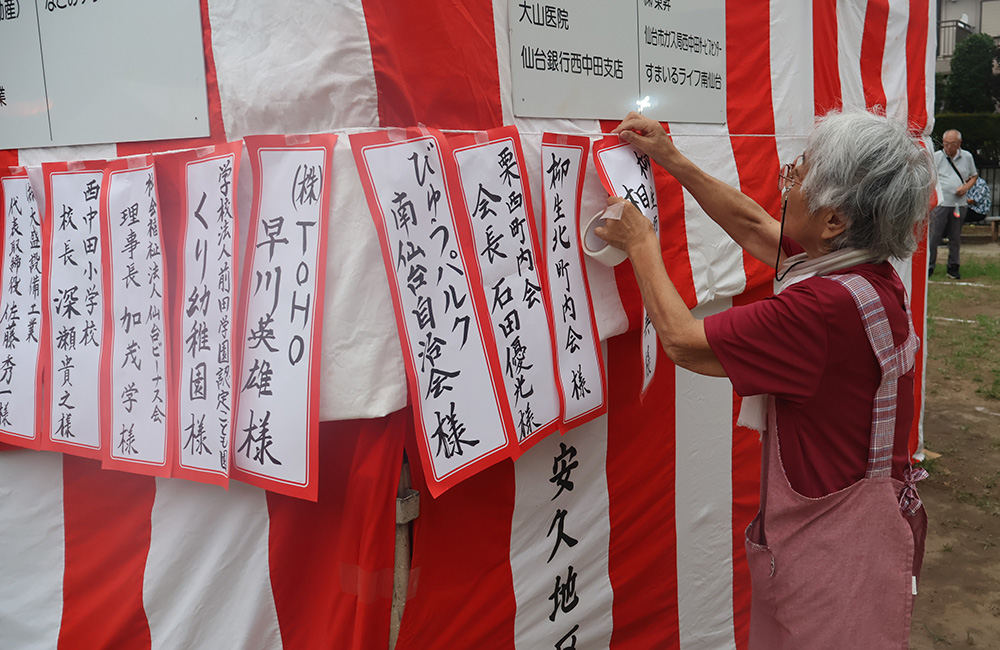 大山医院
仙台銀行西中田支店
仙台市ガス局西中田サービスセンター
すまいるライフ南仙台
業
大益設備工業
代表取締役 佐藤秀一様
西中田小学校
校長 深瀬貴之様
社会福祉法人仙台ビーナス会
理事長 加茂学 様
学校法人前田学園認定こども園
くり幼稚園 様
(株)TOHO
早川英雄様
びゅうパルク
南仙台自治会 様
栗西町内会
会長 石田優光様
柳生北町内会 様
安久地区